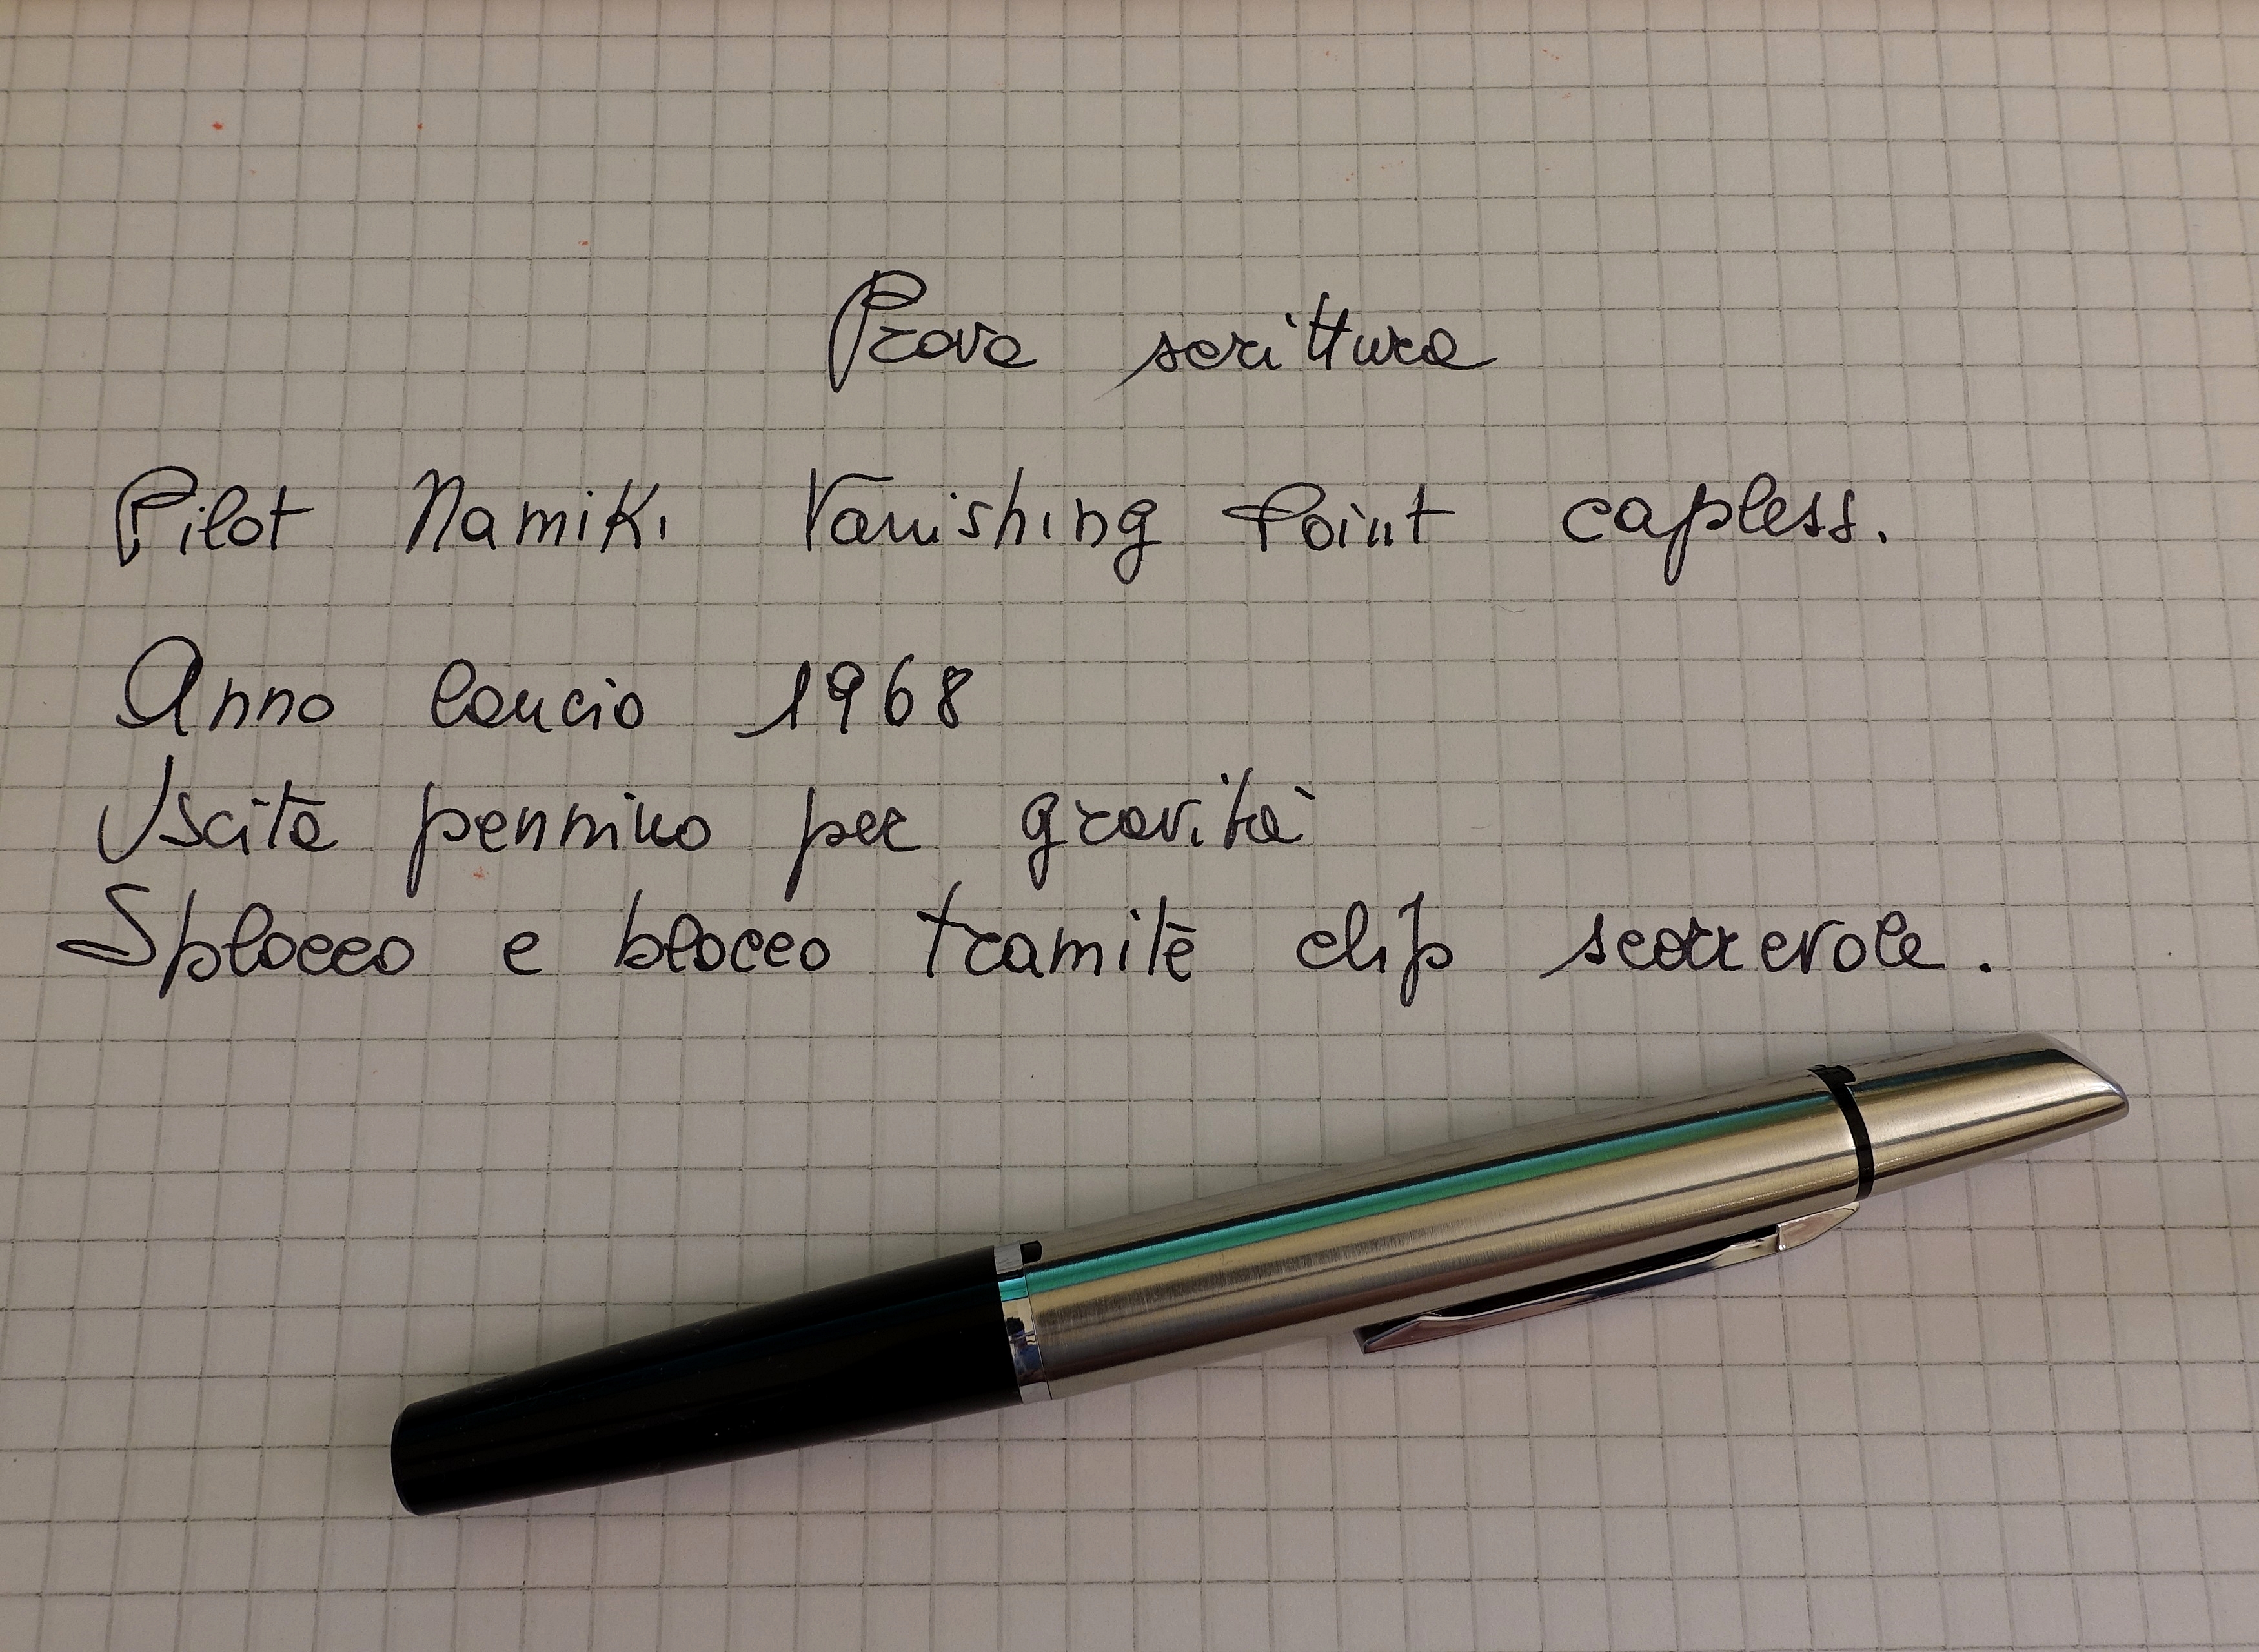 Prova scrittura
Pilot Namiki Vanishing Point capless.
Anno lancio 1968
Uscita pennino per gravità
Splocco e blocco tramite clip scorrevole.